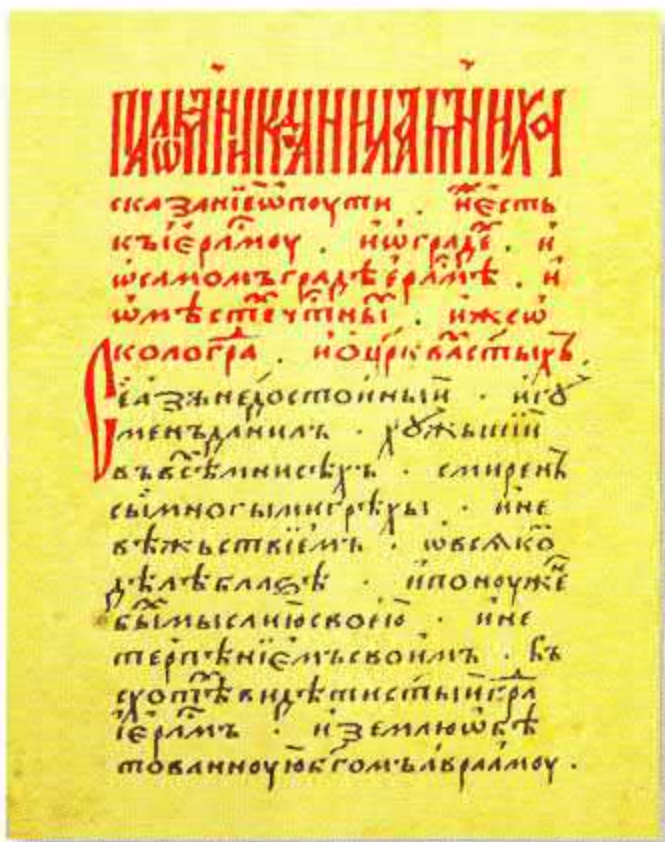 сказанїеѡпоути . и҆е҆сть
къїерл҃моу . иѡградѣ . и
ѡсамомъградѣерл҃мѣ . и
ѡмѣстечт҃ны . ижеѡ
кологра . иоцрк҃вас҃тыхъ .
Сеазънедостоиныи . игоу
менъданилъ . хоужьшїи
въвсемнисѣхъ . смирень
сымногымигрѣхы . ине
вѣжьствїемъ . ѡвсѧко
дѣлѣблаѕѣ . ипоноуже
бымыслиюсвоею . ине
терпѣнїемъсвоимъ . въ
схотѣвидѣтист҃ыигра
їерл҃мъ . иземлюѡбѣ
тованноуюбг҃омъавраамоу .